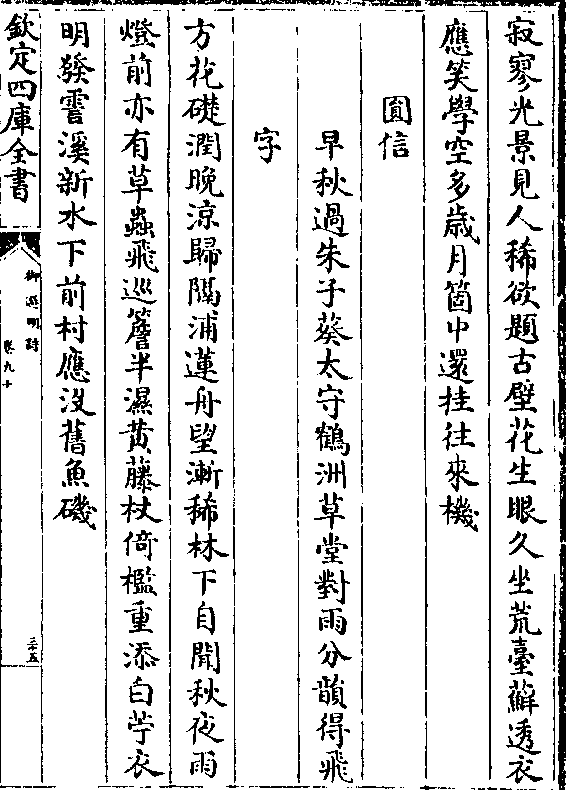 寂寥光景見人稀欲題古壁花生眼久坐荒臺蘚透衣
應笑學空多歳月箇中還挂往來機
圎信
早秋過朱子葵太守鶴洲草堂對雨分韻得飛
字
方花礎潤晚涼歸隔浦蓮舟望漸稀林下自聞秋夜雨
燈前亦有草蟲飛巡簷半濕黃藤杖倚檻重添白苧衣
明發霅溪新水下前村應沒舊魚磯
欽定四庫全書
御選明詩
卷九十
三十五